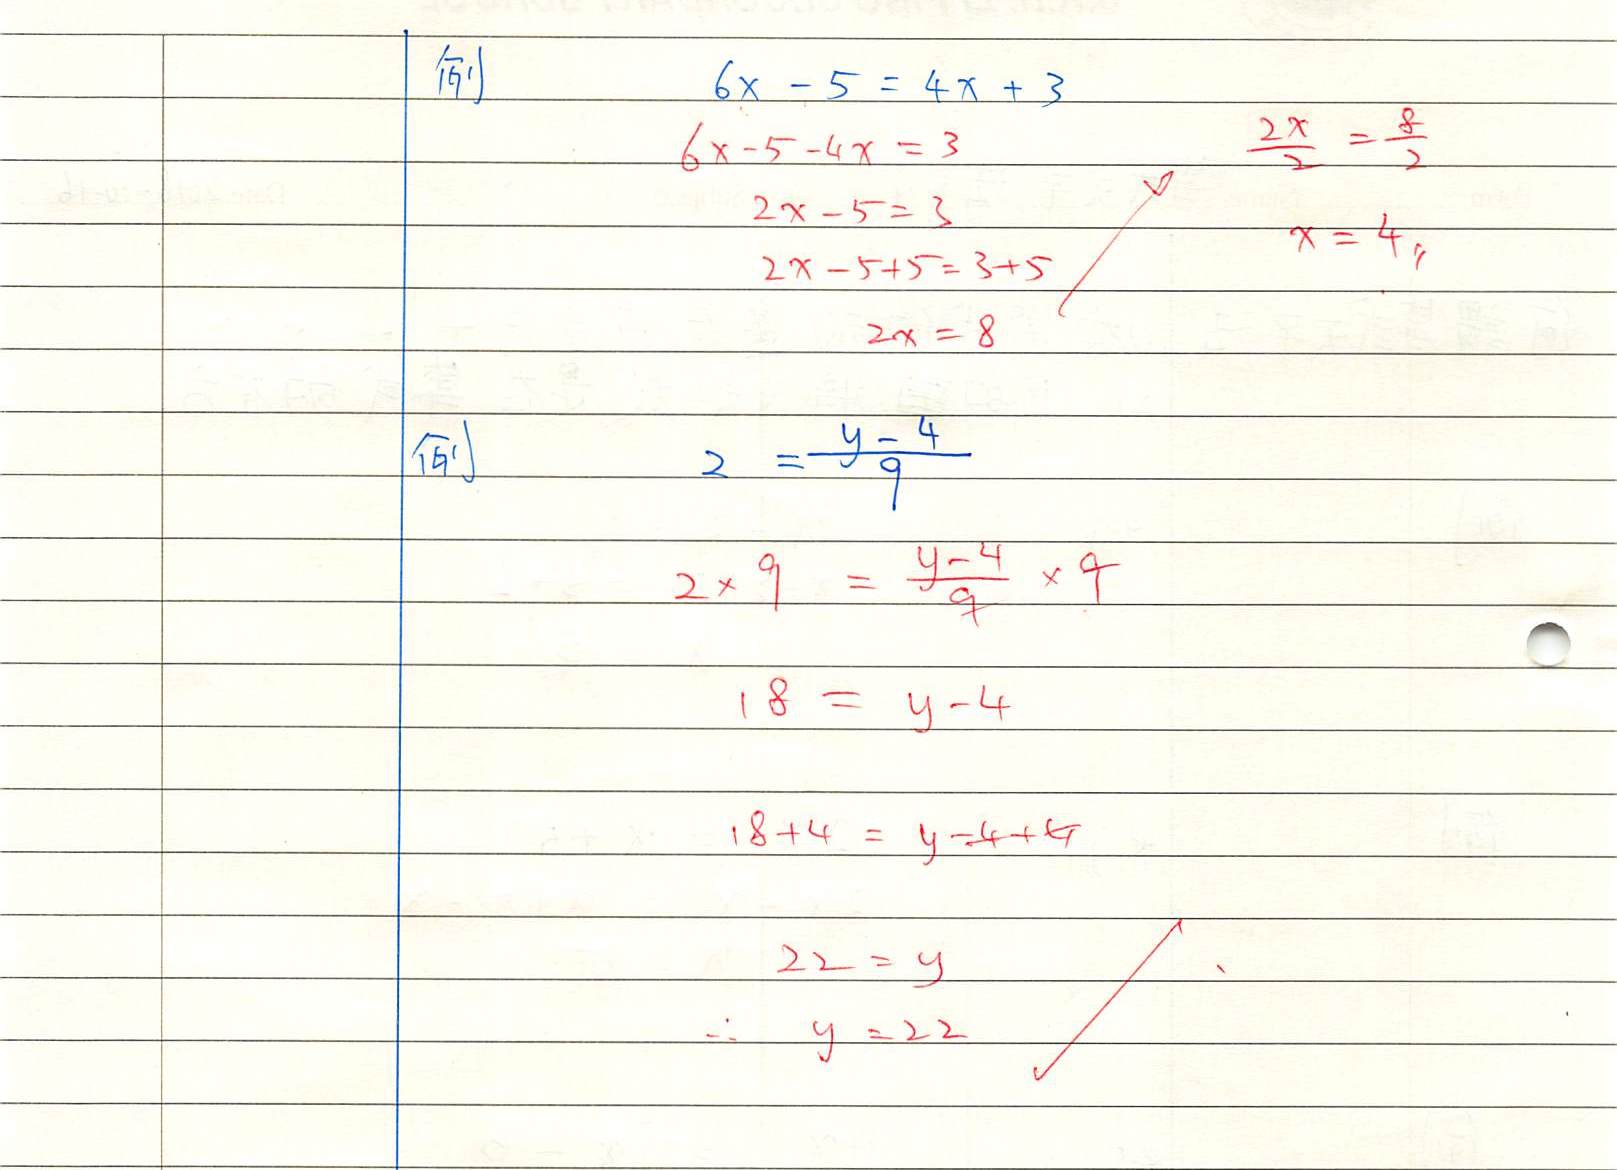 例 6x - 5 = 4x + 3
6x - 5 - 4x = 3
2x - 5 = 3
2x - 5 + 5 = 3 + 5
2x = 8
2x/2 = 8/2
x = 4
例 2 = (y - 4)/9
2 × 9 = (y - 4)/9 × 9
18 = y - 4
18 + 4 = y - 4 + 4
22 = y
∴ y = 22